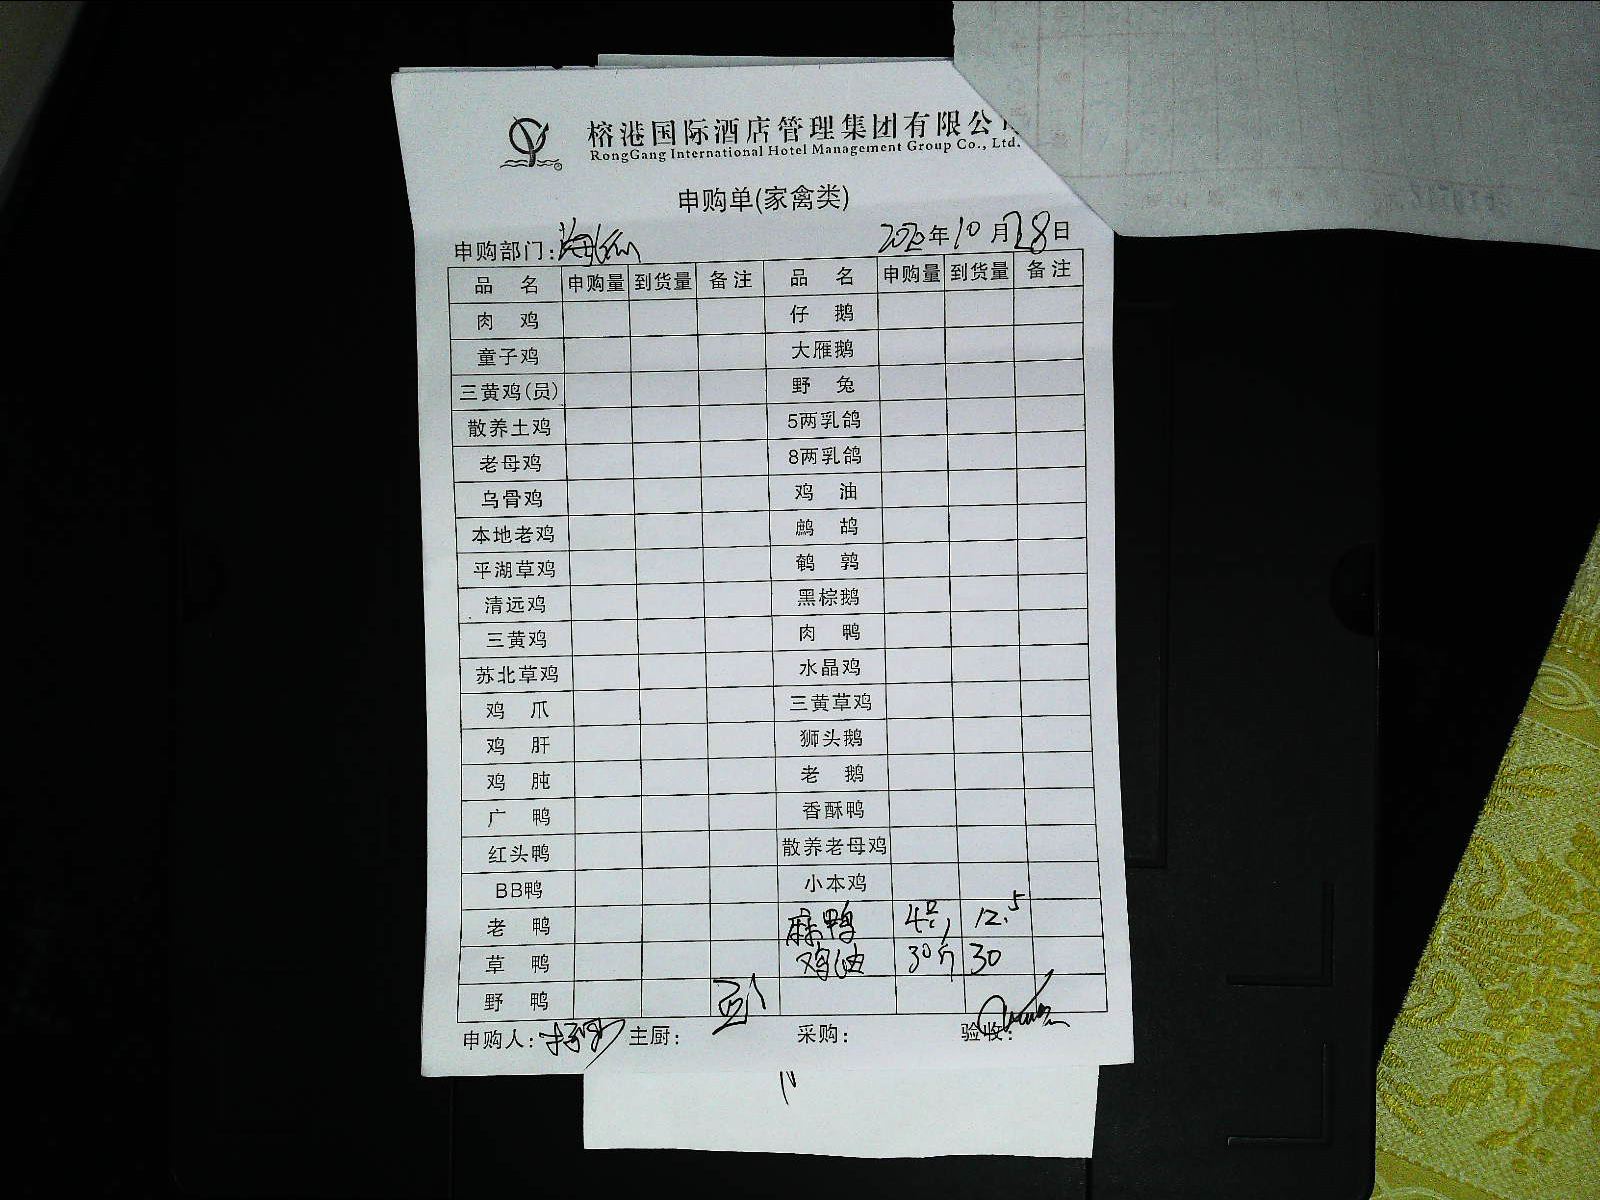 榕港国际酒店管理集团有限公
RongGang International Hotel Management Group Co., Ltd.
申购单(家禽类)
申购部门: 2020年10月28日
品名 申购量 到货量 备注 品名 申购量 到货量 备注
肉鸡 仔鹅
童子鸡 大雁鹅
三黄鸡(员) 野兔
散养土鸡 5两乳鸽
老母鸡 8两乳鸽
乌骨鸡 鸡油
本地老鸡 鹧鸪
平湖草鸡 鹌鹑
清远鸡 黑棕鹅
三黄鸡 肉鸭
苏北草鸡 水晶鸡
鸡爪 三黄草鸡
鸡肝 狮头鹅
鸡肫 老鹅
广鸭 香酥鸭
红头鸭 散养老母鸡
BB鸭 小本鸡
老鸭 麻鸭 4只 12.5
草鸭 鸡油 30斤 30
野鸭
申购人: 主厨: 采购: 验收: